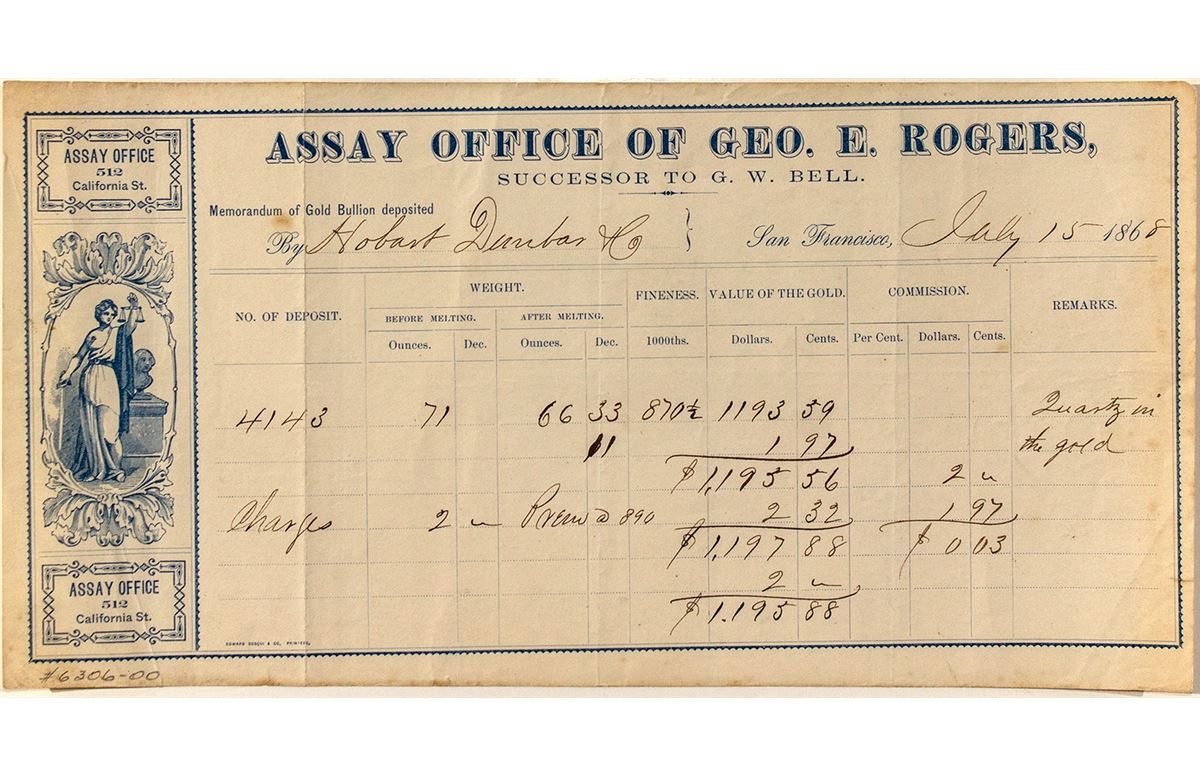 ASSAY OFFICE
512
California St.
ASSAY OFFICE OF GEO. E. ROGERS,
SUCCESSOR TO G. W. BELL.
Memorandum of Gold Bullion deposited
By Hobart Dunbar & Co } San Francisco, July 15 1868
NO. OF DEPOSIT. WEIGHT. FINENESS. VALUE OF THE GOLD. COMMISSION. REMARKS.
BEFORE MELTING. AFTER MELTING.
Ounces. Dec. Ounces. Dec. 1000ths. Dollars. Cents. Per Cent. Dollars. Cents.
4143 71 66 33 870½ 1193 59 Quartz in
11 1 97 the gold
$1,195 56 2 "
Charges 2 " Prem @ 890 2 32 1 97
$1,197 88 $0 03
2 "
$1.195 88
ASSAY OFFICE
512
California St.
EDWARD BOSQUI & CO, PRINTERS,
#6306-00